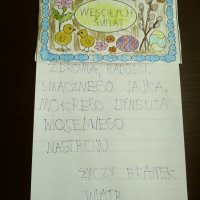 WESOŁYCH
ŚWIĄT
ZDROWIA, RADOŚCI,
SMACZNEGO JAJKA,
MOKREGO DYNGUSA
WIOSENNEGO
NASTROJU
ŻYCZY FRANEK
WIATR